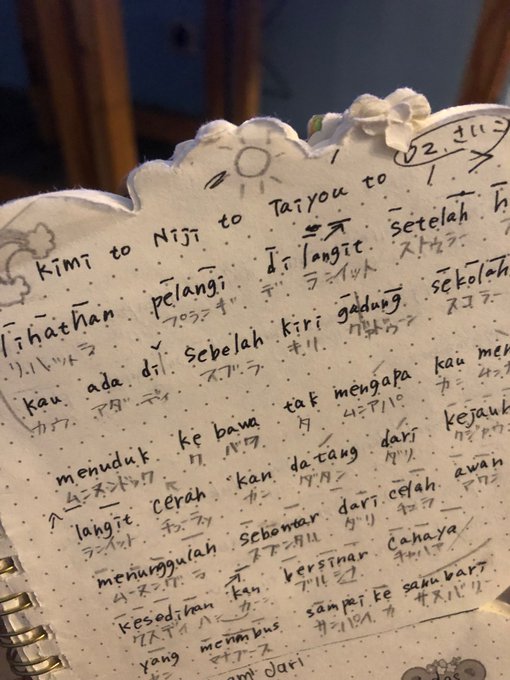 Kimi to Niji to Taiyou to
lihathan pelangi di langit setelah h
リハットラ プランギ デ ランイット ストゥラー
kau ada di sebelah kiri gadung sekolah
カウ アダ ディ スブラ キリ グドゥーン スコラー
menuduk ke bawa tak mengapa kau men
ク バワ タ ムンアパ
langit cerah kan datang dari kejauh
ランイット カン ダタン ダリ クジャウ
menungguiah sebentar dari celah awan
ムーヌングラ スブンタル ダリ チュラ アワン
kesedihan kan bersinar cahaya
クスディハン カン ブルシナ チャハヤ
yang menmbus sampai ke sanubari
サンパイ カ サヌバリー
ami dari